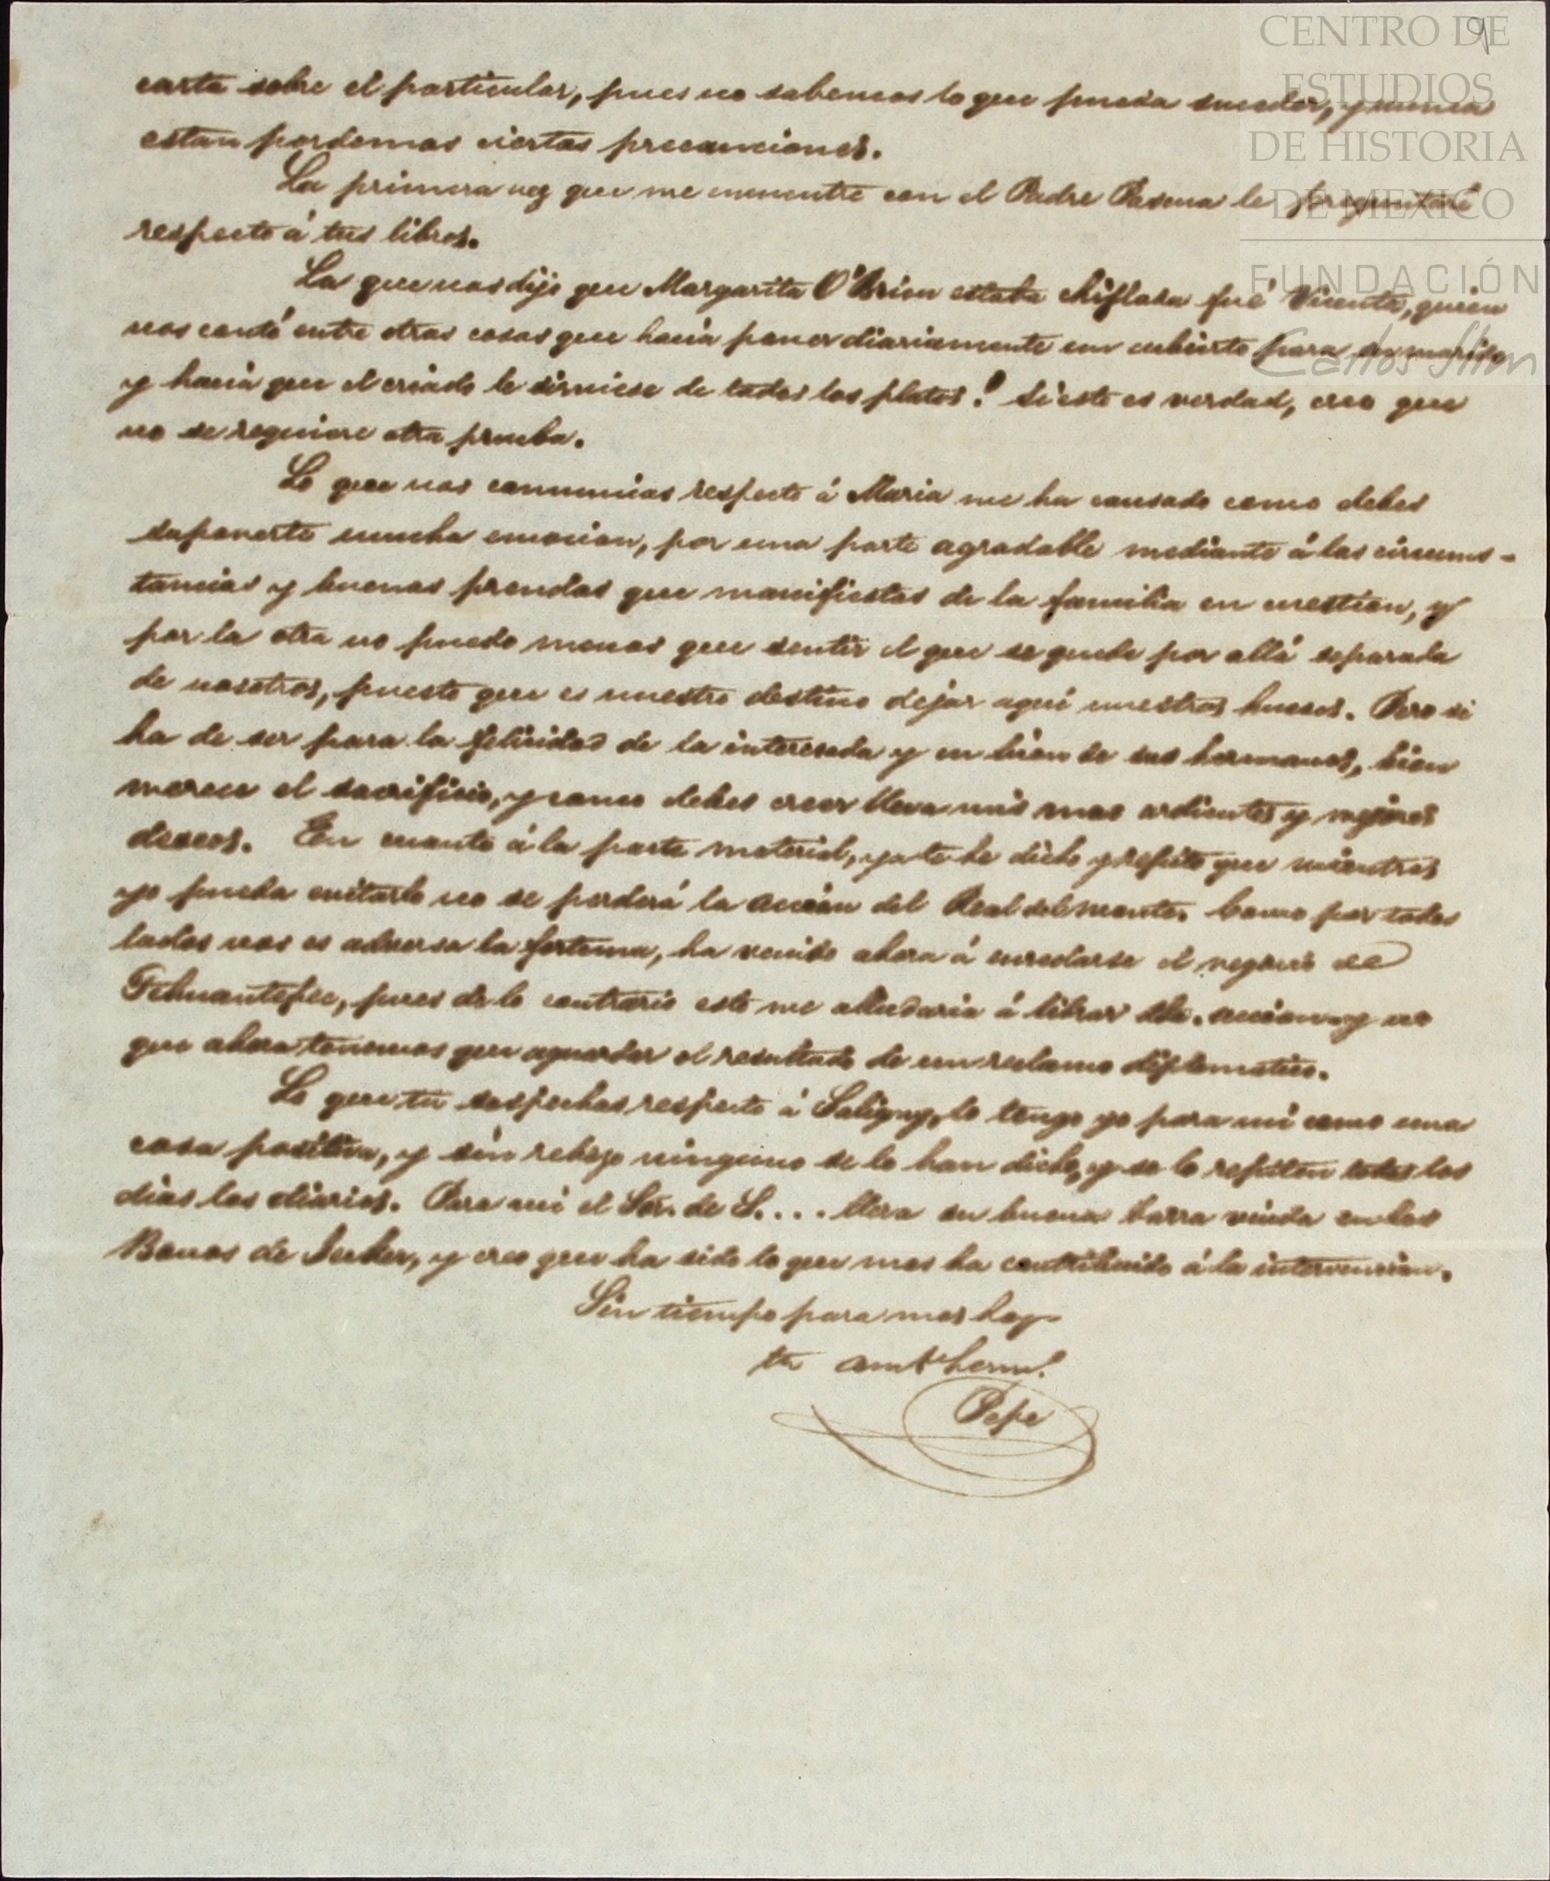 9
CENTRO DE
ESTUDIOS
DE HISTORIA
DE MEXICO
FUNDACIÓN
Carlos Slim
carta sobre el particular, pues no sabemos lo que pueda suceder, y nunca
estan pordemas ciertas precauciones.
La primera vez que me encuentre con el Padre le preguntaré
respecto á tus libros.
La que nos dijo que Margarita O'Brien estaba chiflada fué Vicenta, quien
nos contó entre otras cosas que hacia poner diariamente un cubierto para su marido
y hacia que el criado le sirviese de todos los platos! Si esto es verdad, creo que
no se requiere otra prueba.
Lo que nos comunicas respecto á Maria me ha causado como debes
suponerte mucha emocion, por una parte agradable mediante á las circuns-
tancias y buenas prendas que manifiestas de la familia en cuestion, y
por la otra no puedo menos que sentir el que se quede por allá separada
de nosotros, puesto que es nuestro destino dejar aquí nuestros huesos. Pero si
ha de ser para la felicidad de la interesada y en bien de sus hermanos, bien
merece el sacrificio, y como debes creer lleva mis mas ardientes y mejores
deseos. En cuanto á la parte material, ya te he dicho y repito que mientras
yo pueda evitarlo no se perderá la accion del Real del Monte. Como por todos
lados nos es adversa la fortuna, ha venido ahora á enredarse el negocio de
Tehuantepec, pues de lo contrario este me alludaria á librar dha. accion y no
que ahora tenemos que aguardar el resultado de un reclamo diplomatico.
Lo que tu sospechas respecto á Saligny, lo tengo yo para mí como una
cosa positiva, y sin rebozo ninguno se lo han dicho, y se lo repiten todos los
dias los diarios. Para mí el Sor. de S.... lleva su buena barra vieda en los
Bonos de Jecker, y creo que ha sido lo que mas ha contribuido á la intervencion.
Sin tiempo para mas hoy
tu amte. herm.
Pepe